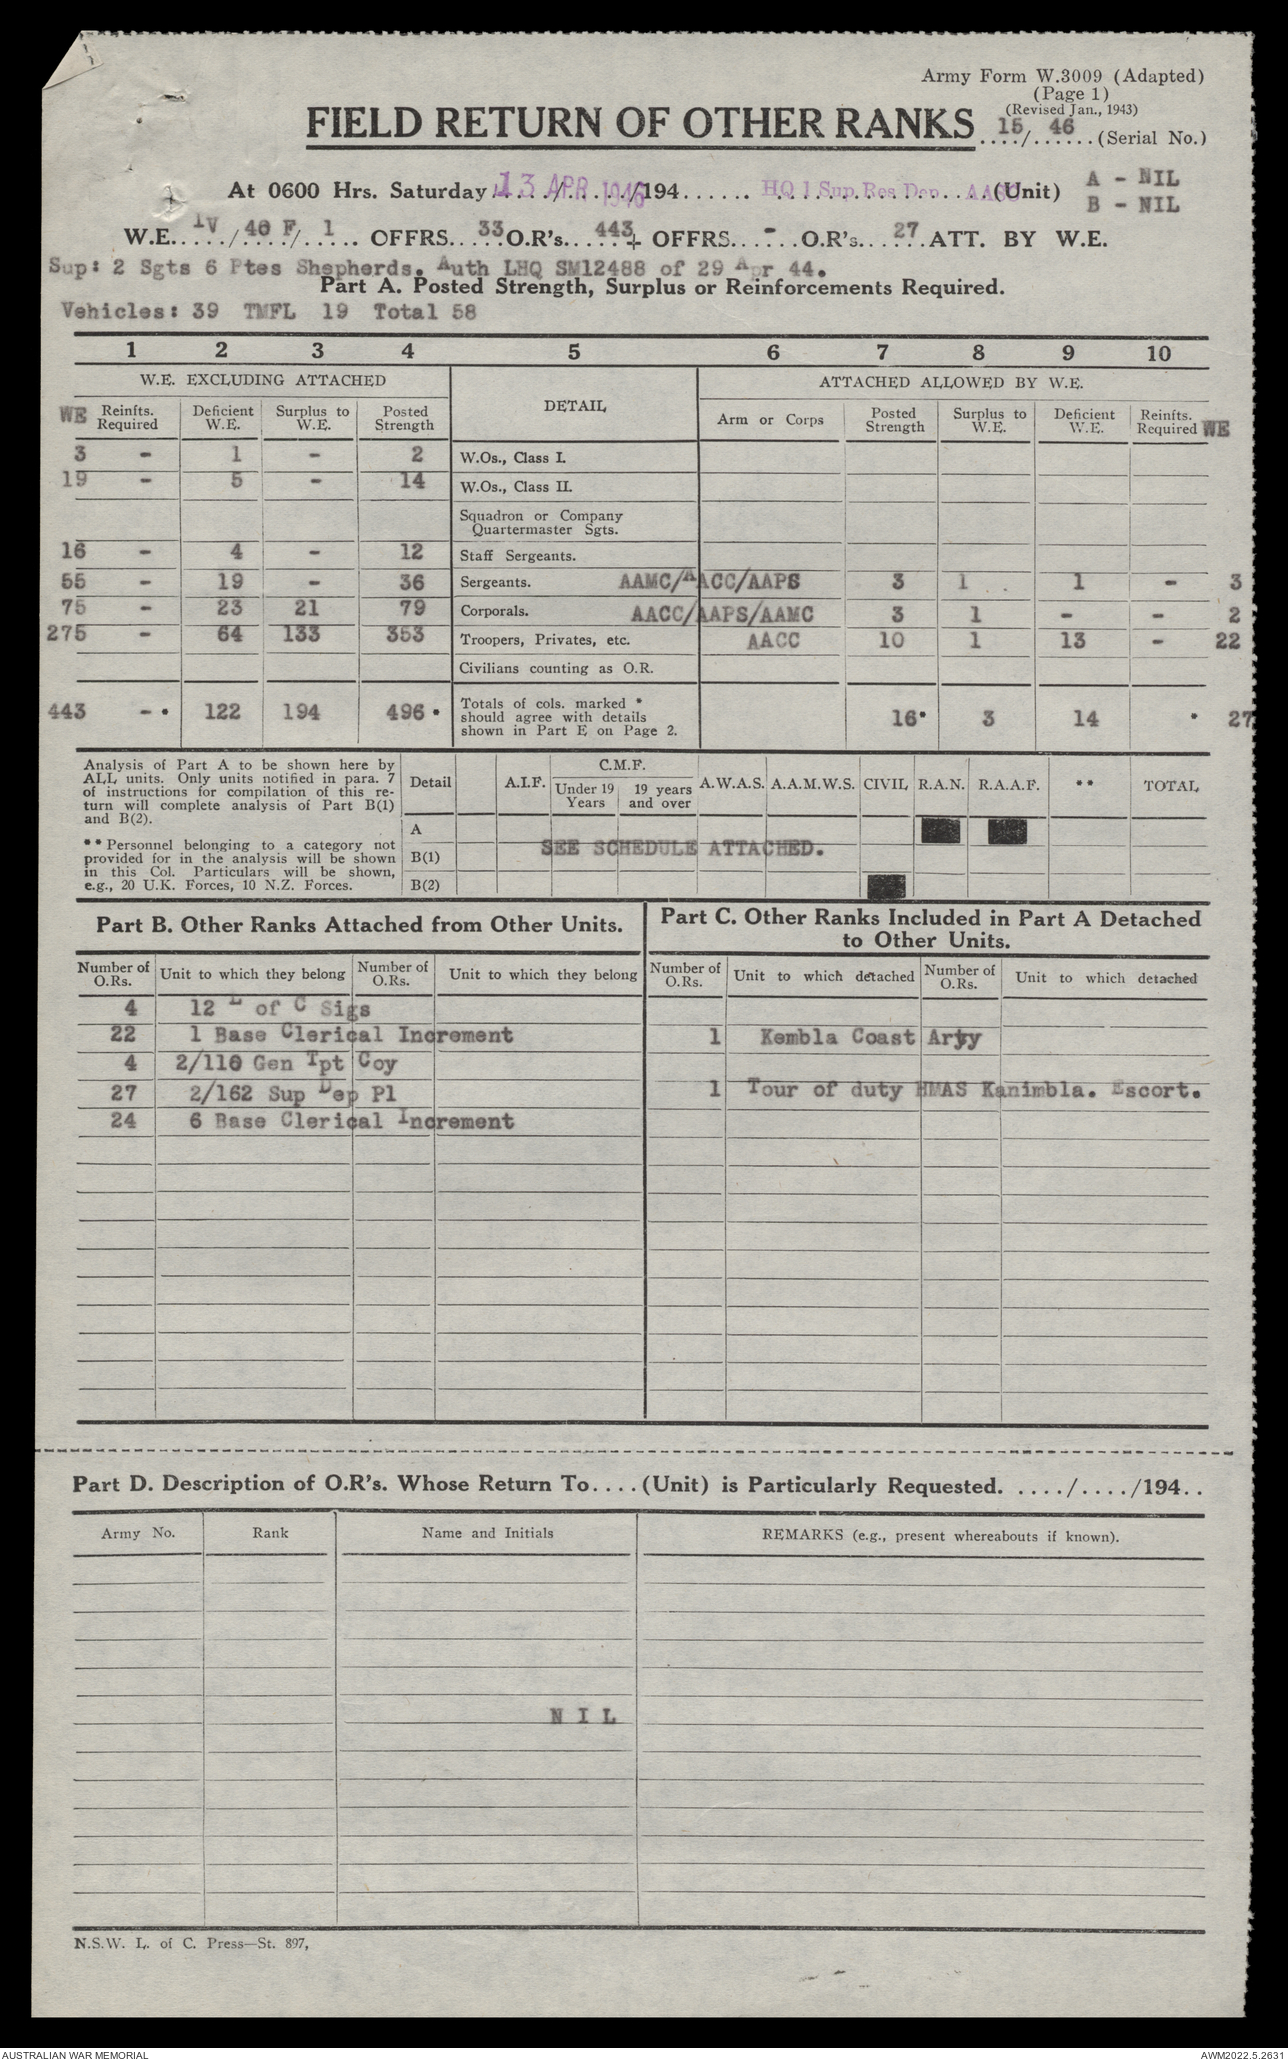 Army Form W.3009 (Adapted)
(Page 1)
(Revised Jan., 1943)
FIELD RETURN OF OTHER RANKS ....15/..46....(Serial No.)
At 0600 Hrs. Saturday 13 APR 1946 /194...... HQ 1 Sup.Res Dep.. AASC (Unit) A - NIL
B - NIL
W.E. IV / 40 F / 1 .... OFFRS....33 O.R's...443 + OFFRS..-...O.R's....27 ATT. BY W.E.
Sup: 2 Sgts 6 Ptes Shepherds. Auth LHQ SM12488 of 29 Apr 44.
Part A. Posted Strength, Surplus or Reinforcements Required.
Vehicles: 39 TMFL 19 Total 58
1 2 3 4 5 6 7 8 9 10
W.E. EXCLUDING ATTACHED DETAIL ATTACHED ALLOWED BY W.E.
WE Reinfts. Required Deficient W.E. Surplus to W.E. Posted Strength Arm or Corps Posted Strength Surplus to W.E. Deficient W.E. Reinfts. Required WE
3 - 1 - 2 W.Os., Class I.
19 - 5 - 14 W.Os., Class II.
Squadron or Company
Quartermaster Sgts.
16 - 4 - 12 Staff Sergeants.
55 - 19 - 36 Sergeants. AAMC/AACC/AAPS 3 1 1 - 3
75 - 23 21 79 Corporals. AACC/AAPS/AAMC 3 1 - - 2
275 - 64 133 353 Troopers, Privates, etc. AACC 10 1 13 - 22
Civilians counting as O.R.
443 - * 122 194 496 * Totals of cols. marked * should agree with details shown in Part E on Page 2. 16* 3 14 * 27
Analysis of Part A to be shown here by
ALL units. Only units notified in para. 7
of instructions for compilation of this re-
turn will complete analysis of Part B(1)
and B(2).
** Personnel belonging to a category not
provided for in the analysis will be shown
in this Col. Particulars will be shown,
e.g., 20 U.K. Forces, 10 N.Z. Forces.
Detail A.I.F. C.M.F. Under 19 Years 19 years and over A.W.A.S. A.A.M.W.S. CIVIL R.A.N. R.A.A.F. ** TOTAL
A
B(1) SEE SCHEDULE ATTACHED.
B(2)
Part B. Other Ranks Attached from Other Units.
Part C. Other Ranks Included in Part A Detached
to Other Units.
Number of O.Rs. Unit to which they belong Number of O.Rs. Unit to which they belong Number of O.Rs. Unit to which detached Number of O.Rs. Unit to which detached
4 12 L of C Sigs
22 1 Base Clerical Increment 1 Kembla Coast Arty
4 2/110 Gen Tpt Coy
27 2/162 Sup Dep Pl 1 Tour of duty HMAS Kanimbla. Escort.
24 6 Base Clerical Increment
Part D. Description of O.R's. Whose Return To....(Unit) is Particularly Requested. ..../..../194..
Army No. Rank Name and Initials REMARKS (e.g., present whereabouts if known).
N I L
N.S.W. L. of C. Press—St. 897,
AUSTRALIAN WAR MEMORIAL AWM2022.5.2631